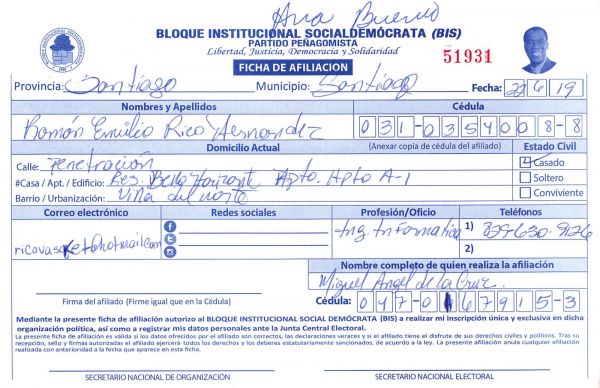 Ana Bueno
BLOQUE INSTITUCIONAL SOCIALDEMÓCRATA (BIS)
PARTIDO PEÑAGOMISTA
Libertad, Justicia, Democracia y Solidaridad
51931
FICHA DE AFILIACION
Provincia: Santiago Municipio: Santiago Fecha: 22 6 19
Nombres y Apellidos Cédula
Ramón Emilio Rico Hernandez 031-0354008-8
Domicilio Actual (Anexar copia de cédula del afiliado) Estado Civil
Calle: Penetración Casado
#Casa / Apt. / Edificio: Res. Bella Horizonte Apto. Apto A-1 Soltero
Barrio / Urbanización: Villa del norte Conviviente
Correo electrónico Redes sociales Profesión/Oficio Teléfonos
Ing. Informatica 1) 829-630-9126
2)
Nombre completo de quien realiza la afiliación
Miguel Angel de la Cruz
Firma del afiliado (Firme igual que en la Cédula) Cédula: 047-0167915-3
Mediante la presente ficha de afiliación autorizo al BLOQUE INSTITUCIONAL SOCIAL DEMÓCRATA (BIS) a realizar mi inscripción única y exclusiva en dicha
organización política, así como a registrar mis datos personales ante la Junta Central Electoral.
La presente ficha de afiliación es válida si los datos ofrecidos por el afiliado son correctos, las declaraciones veraces y si el afiliado tiene el disfrute de sus derechos civiles y políticos. Tras su
recepción, sello y firmas autorizadas el afiliado ejercerá todos los derechos y los deberes estatutariamente sancionados, de acuerdo a la ley. La presente afiliación anula cualquier afiliación
realizada con anterioridad a la fecha que aparece en esta ficha.
SECRETARIO NACIONAL DE ORGANIZACIÓN SECRETARIO NACIONAL ELECTORAL